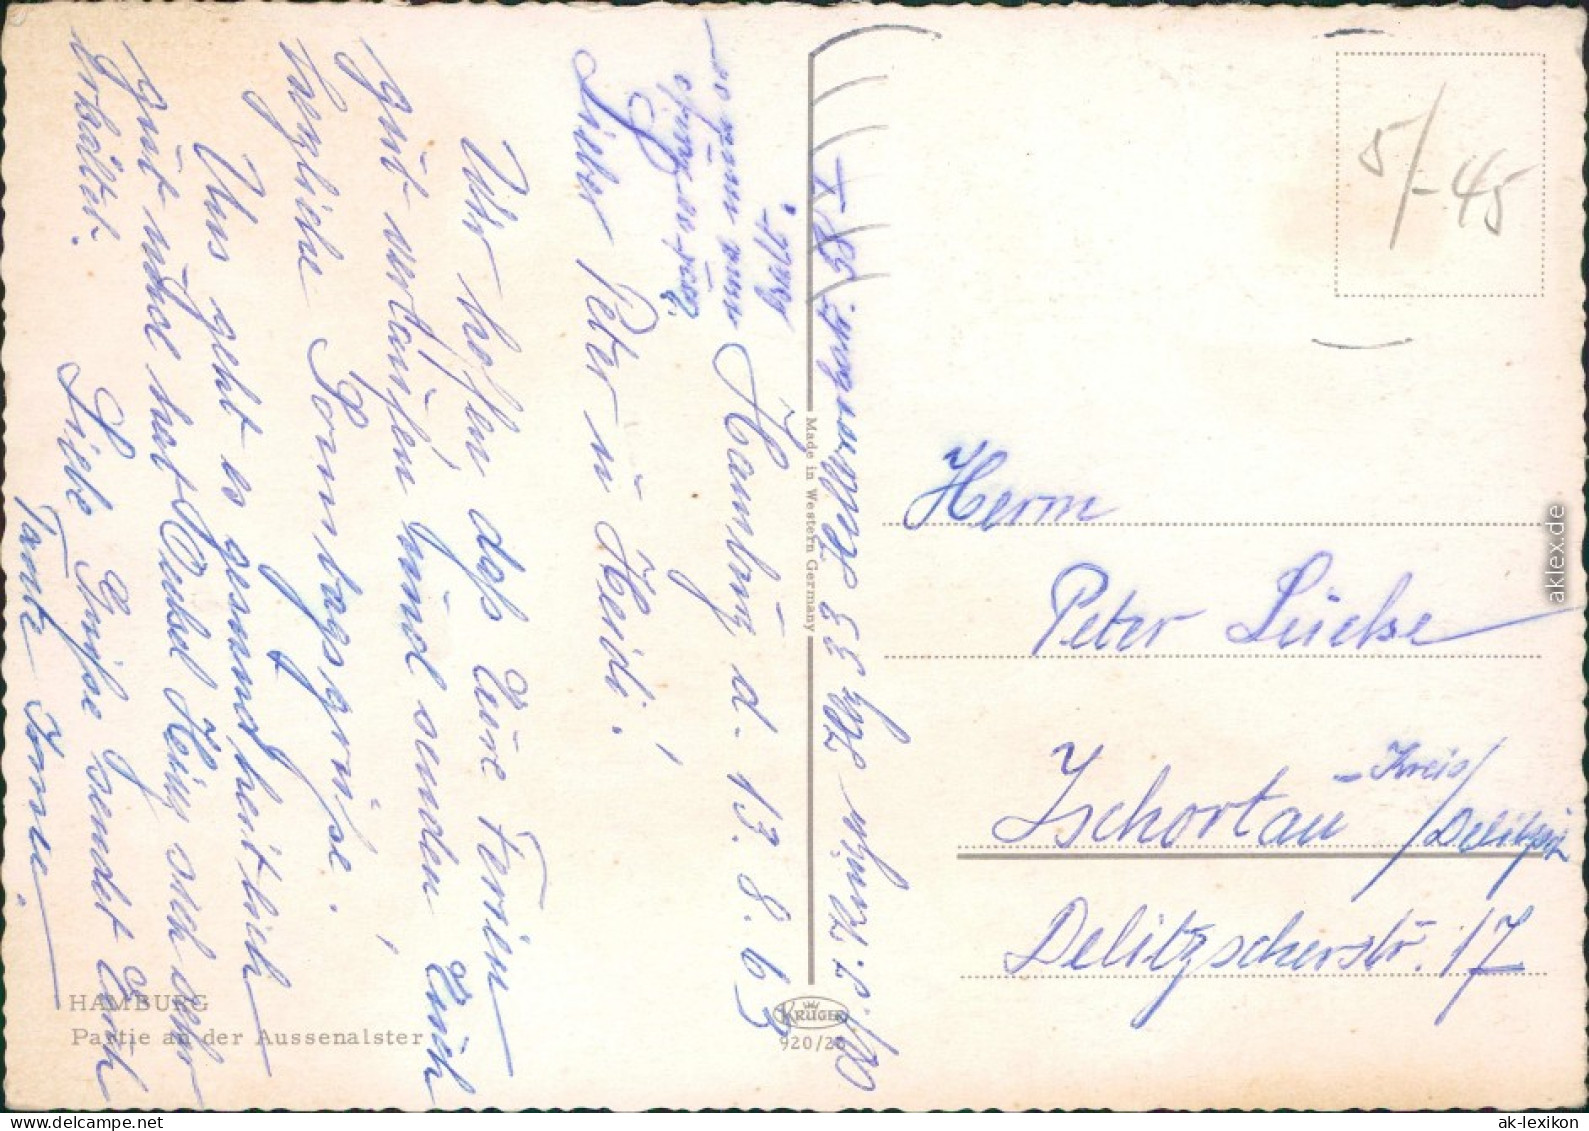 Hamburg d. 13.8.63
Lieber Peter u Heidi!
Wir hoffen daß Eure Ferien
gut verlaufen und senden Euch
herzliche Sonntagsgrüße.
Uns geht es gesundheitlich
gut und hat Onkel Heinz sich sehr
erholt.
Liebe Grüße sendet Euch
Tante Irma.
Made in Western Germany
KRÜGER
920/28
HAMBURG
Partie an der Aussenalster
5/-45
Herrn
Peter Lücke
Zschortau - Kreis
Delitzsch
Delitzscherstr. 17
aklex.de
ak-lexikon